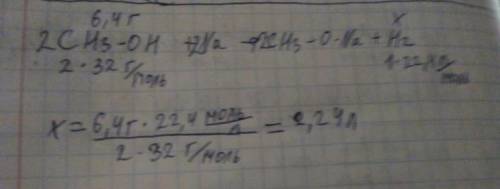 6,4 г x
2CH3-OH + 2Na → 2CH3-O-Na + H2
2·32 г/моль 1·22,4 л/моль
x = 6,4г·22,4 моль/л / 2·32 г/моль = 2,24л